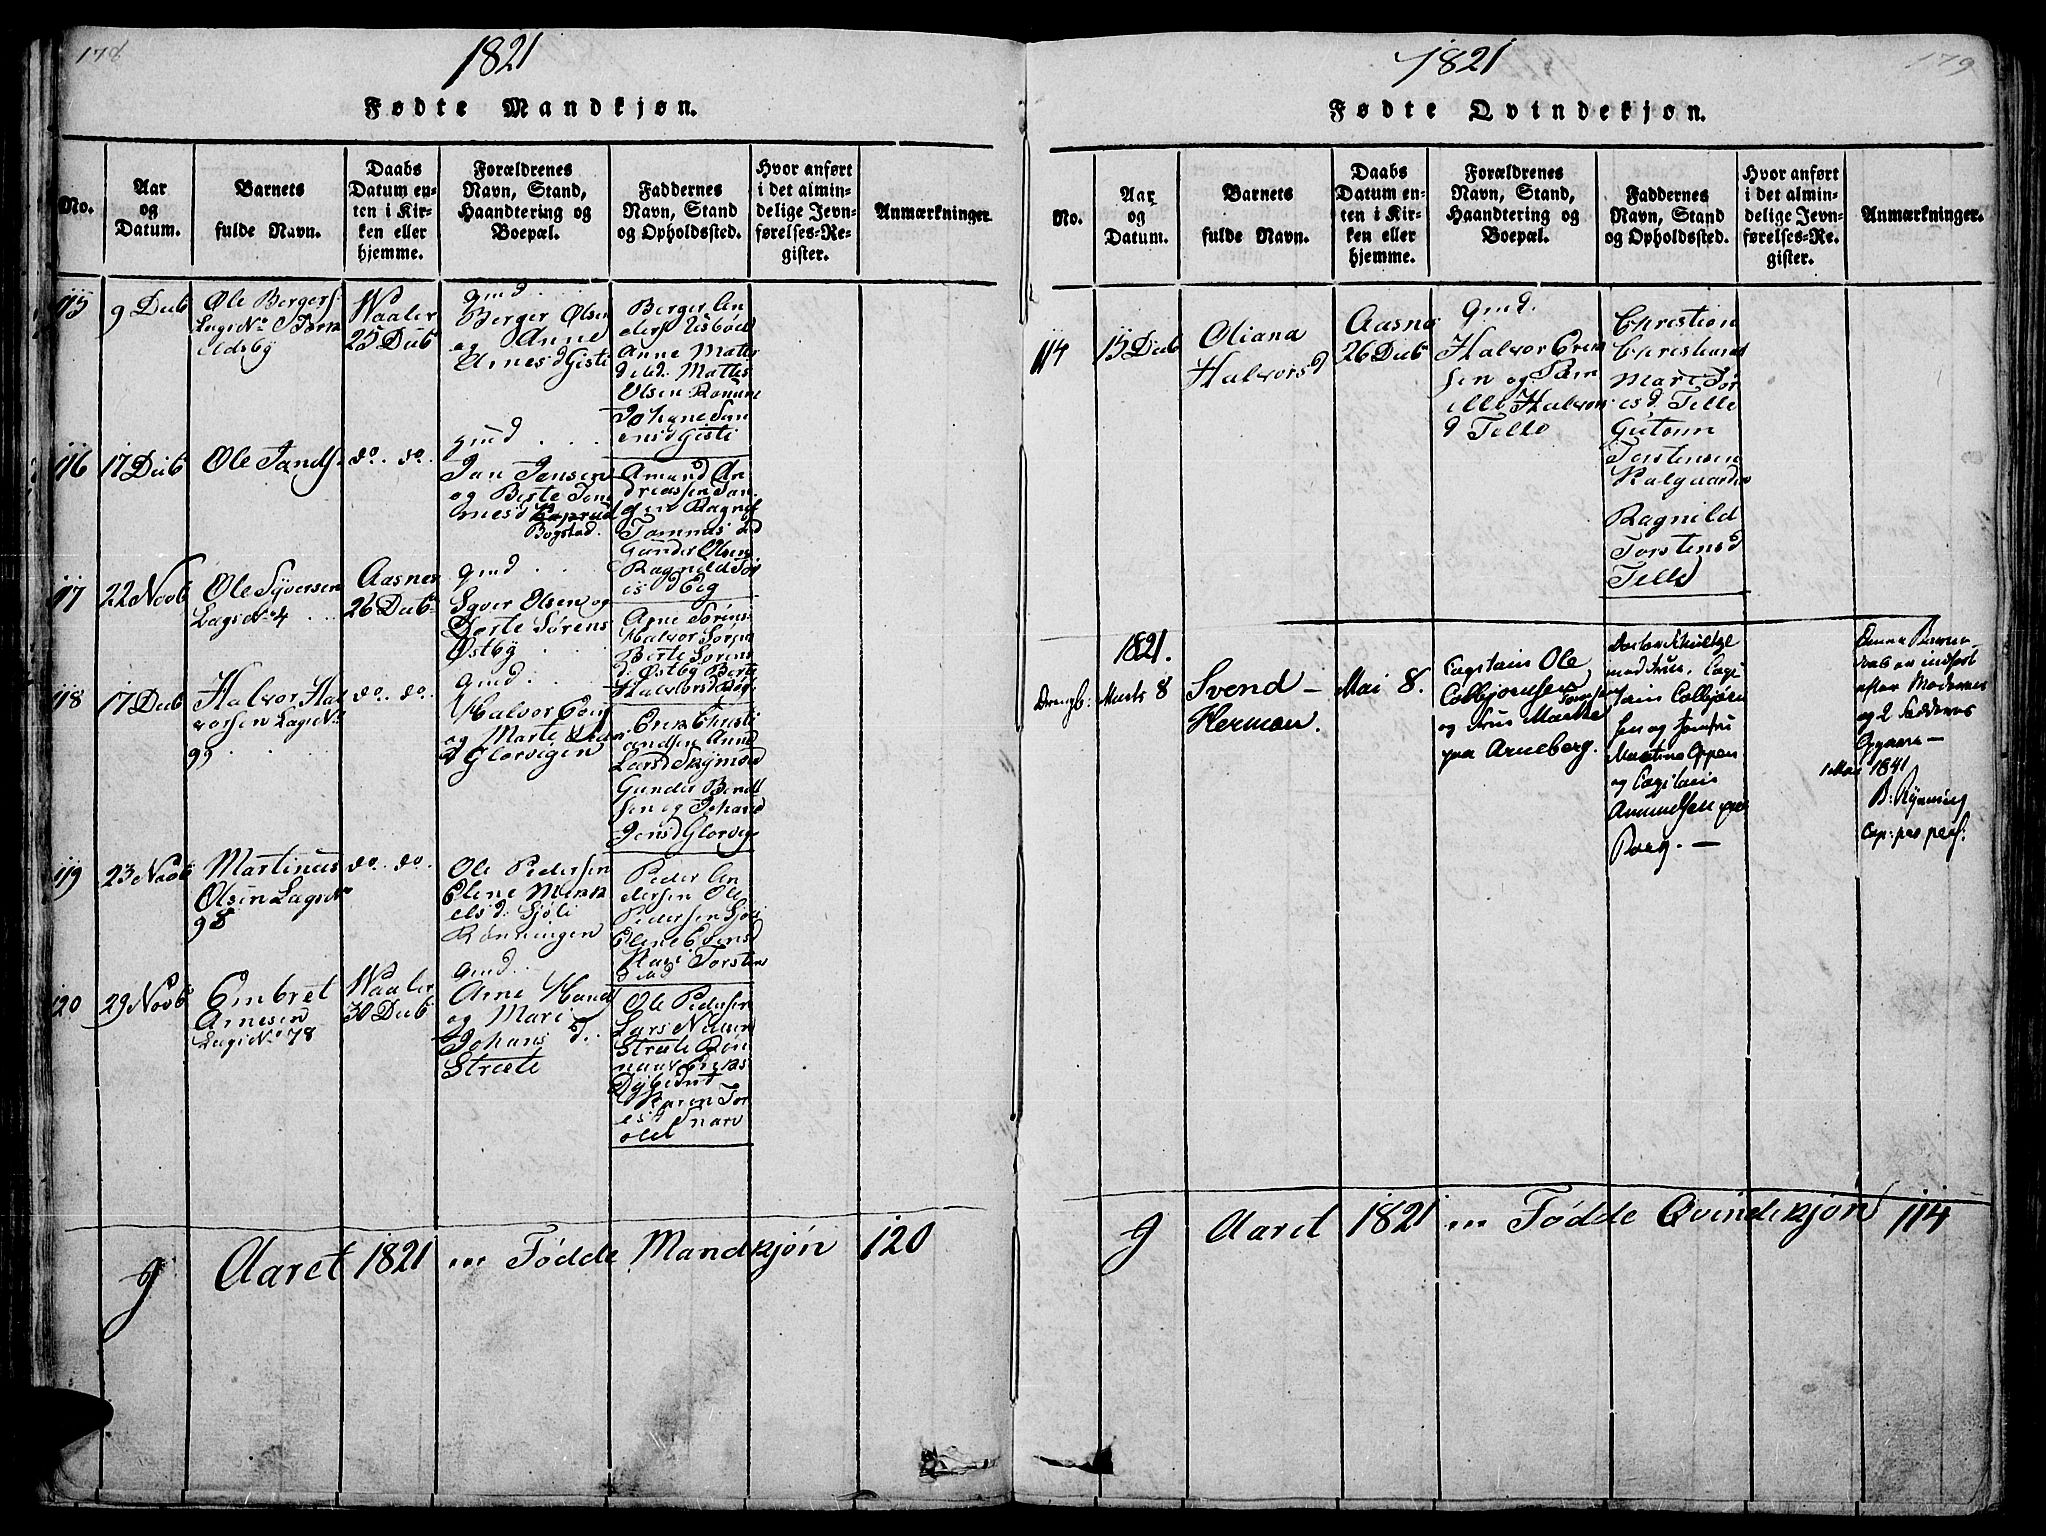 178
1821
Fødte Mandkjøn.
No.
Aar
og
Datum.
Barnets
fulde Navn.
Daabs
Datum en-
ten i Kir-
ken eller
hjemme.
Forældrenes
Navn, Stand,
Haandtering og
Boepæl.
Faddernes
Navn, Stand
og Opholdssted.
Hvor anført
i det almin-
delige Jevn-
førelses-Re-
gister.
Anmærkninger.
115
9 Decb
Ole Bergers.
Eidsby
Waaler
25 Decb
gmd
Berger Olsen
og Anne
Arnesd Gisti
Berger An
Anne Matts
d ibd. Mattes
Olsen
Johane
ensd Gisti
116
17 Decb
Ole Janss.
do. do.
gmd
Jan Jensen
og Berte Tom
mesd
Bogstad.
Amund An
dreassen
gen Ragnil
Tommes d ibd
Gunder Olsen
Ragnild
isd Eig
117
22 Novb
Ole Syversen
Lægs No 4
Aasnes
26 Decb
gmd
Syver Olsen og
Dorte Sørens
Østby
Arne Sørens
Halvor Søren
Berte Sørens
d. Østby Berte
Halvorsd
118
17 Decb
Halvor Hal
vorsen Lægs No
99
do. do.
gmd
Halvor
og Marte
d Glorvigen
Erik Christi
andsen Anne
Larsd Skymoe
Gunder Bendt
sen og Johane
Jensd Glorvig
119
23 Novb
Martinus
Olsen Lægs No
98
do. do.
Ole Pedersen
Elene Mikk
elsd. Sjøli
Rønningen
Peder An
dersen Ole
Pedersen Sjøli
Elene
Mari Torsten
d ibd
120
29 Novb
Embret
Arnesen
Lægs No 78
Waaler
30 Decb
gmd.
Arne
og Mari
Johans d.
Stræte
Ole Pedersen
Lars Nilsen
Stræte Røn
naue Eriks
Karen Tor
esd
g Aaret 1821 ... Fødde Mandkjøn 120
179
1821
Fødte Qvindekjøn.
No.
Aar
og
Datum.
Barnets
fulde Navn.
Daabs
Datum en-
ten i Kir-
ken eller
hjemme.
Forældrenes
Navn, Stand,
Haandtering og
Boepæl.
Faddernes
Navn, Stand
og Opholdssted.
Hvor anført
i det almin-
delige Jevn-
førelses-Re-
gister.
Anmærkninger.
114
15 Decb
Oliana
Halvorsd
Aasnes
26 Decb
gmd.
Halvor Erik
sen og Pern
ille Halvors
d Telle
Christian
Christians
Mari Tor
esd Telle
Gutorm
Torstensen
Kalgaarden
Ragnild
Torstensd
Telle
Drengb:
1821.
Marts 8
Svend -
Herman.
Mai 8.
Capitain Ole
Colbjørnsen
og Frue Marthe
paa Arneberg.
med Frue. Capi
tain Colbjørn
sen og Jomfru
Martine Oppen
og Capitain
Amundsen paa
Berg. —
Denne Barne-
daab er indført
efter Moderens
og 2 Fadderes
Opgave —
1 Mai 1841
B. Rynning
Cap: pro pers:
g Aaret 1821 ... Fødde Qvindekjøn 114